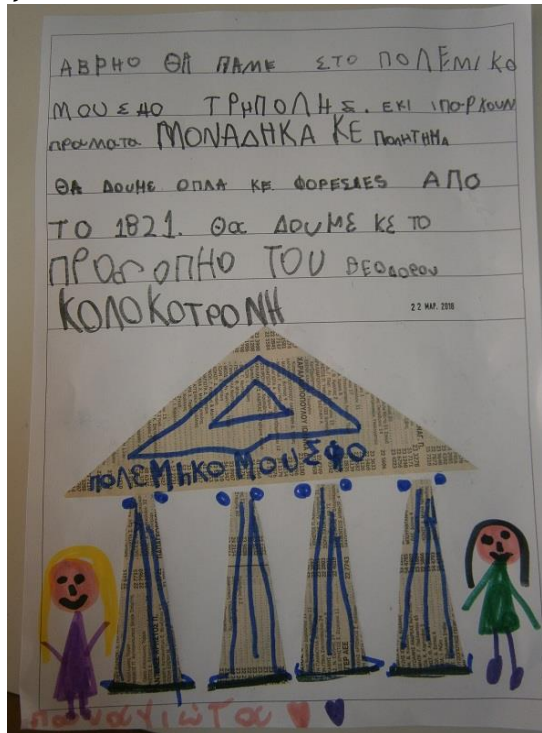 ΑΒΡΗΟ ΘΑ ΠΑΜΕ ΣΤΟ ΠΟΛΕΜΙΚΟ
ΜΟΥΣΗΟ ΤΡΗΠΟΛΗΣ. ΕΚΙ ΙΠΑΡΧΟΥΝ
πραματα ΜΟΝΑΔΗΚΑ ΚΕ ΠΟΛΗΤΗΜΑ
ΘΑ ΔΟΥΜΕ ΟΠΛΑ ΚΕ ΦΟΡΕΣΙΕΣ ΑΠΟ
ΤΟ 1821. Θα ΔΟΥΜΕ ΚΕ ΤΟ
ΠΡΟΣΟΠΗΟ ΤΟΥ ΘΕΟΔΟΡΟΥ
ΚΟΛΟΚΟΤΡΟΝΗ
22 ΜΑΡ. 2018
ΠΟΛΕΜΗΚΟ ΜΟΥΣΦΟ
παναγιώτα